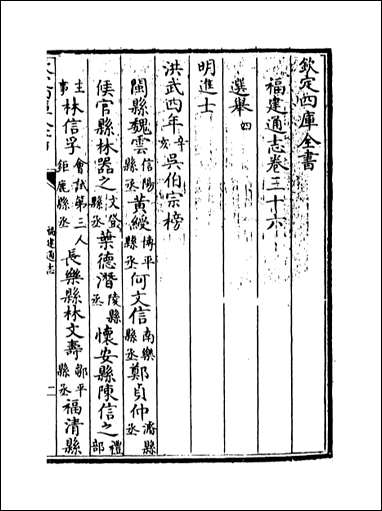 欽定四庫全書
福建通志卷三十六
選舉四
明進士
洪武四年辛亥吳伯宗榜
閩縣魏雲信陽縣丞黄綬博平縣丞何文信南樂縣丞鄭貞仲濬縣丞
侯官縣林器之文登縣丞葉德潛陵縣丞懷安縣陳信之禮部
主事林信孚會試第三人鉅鹿縣丞長樂縣林文壽鄒平縣丞福清縣
福建通志